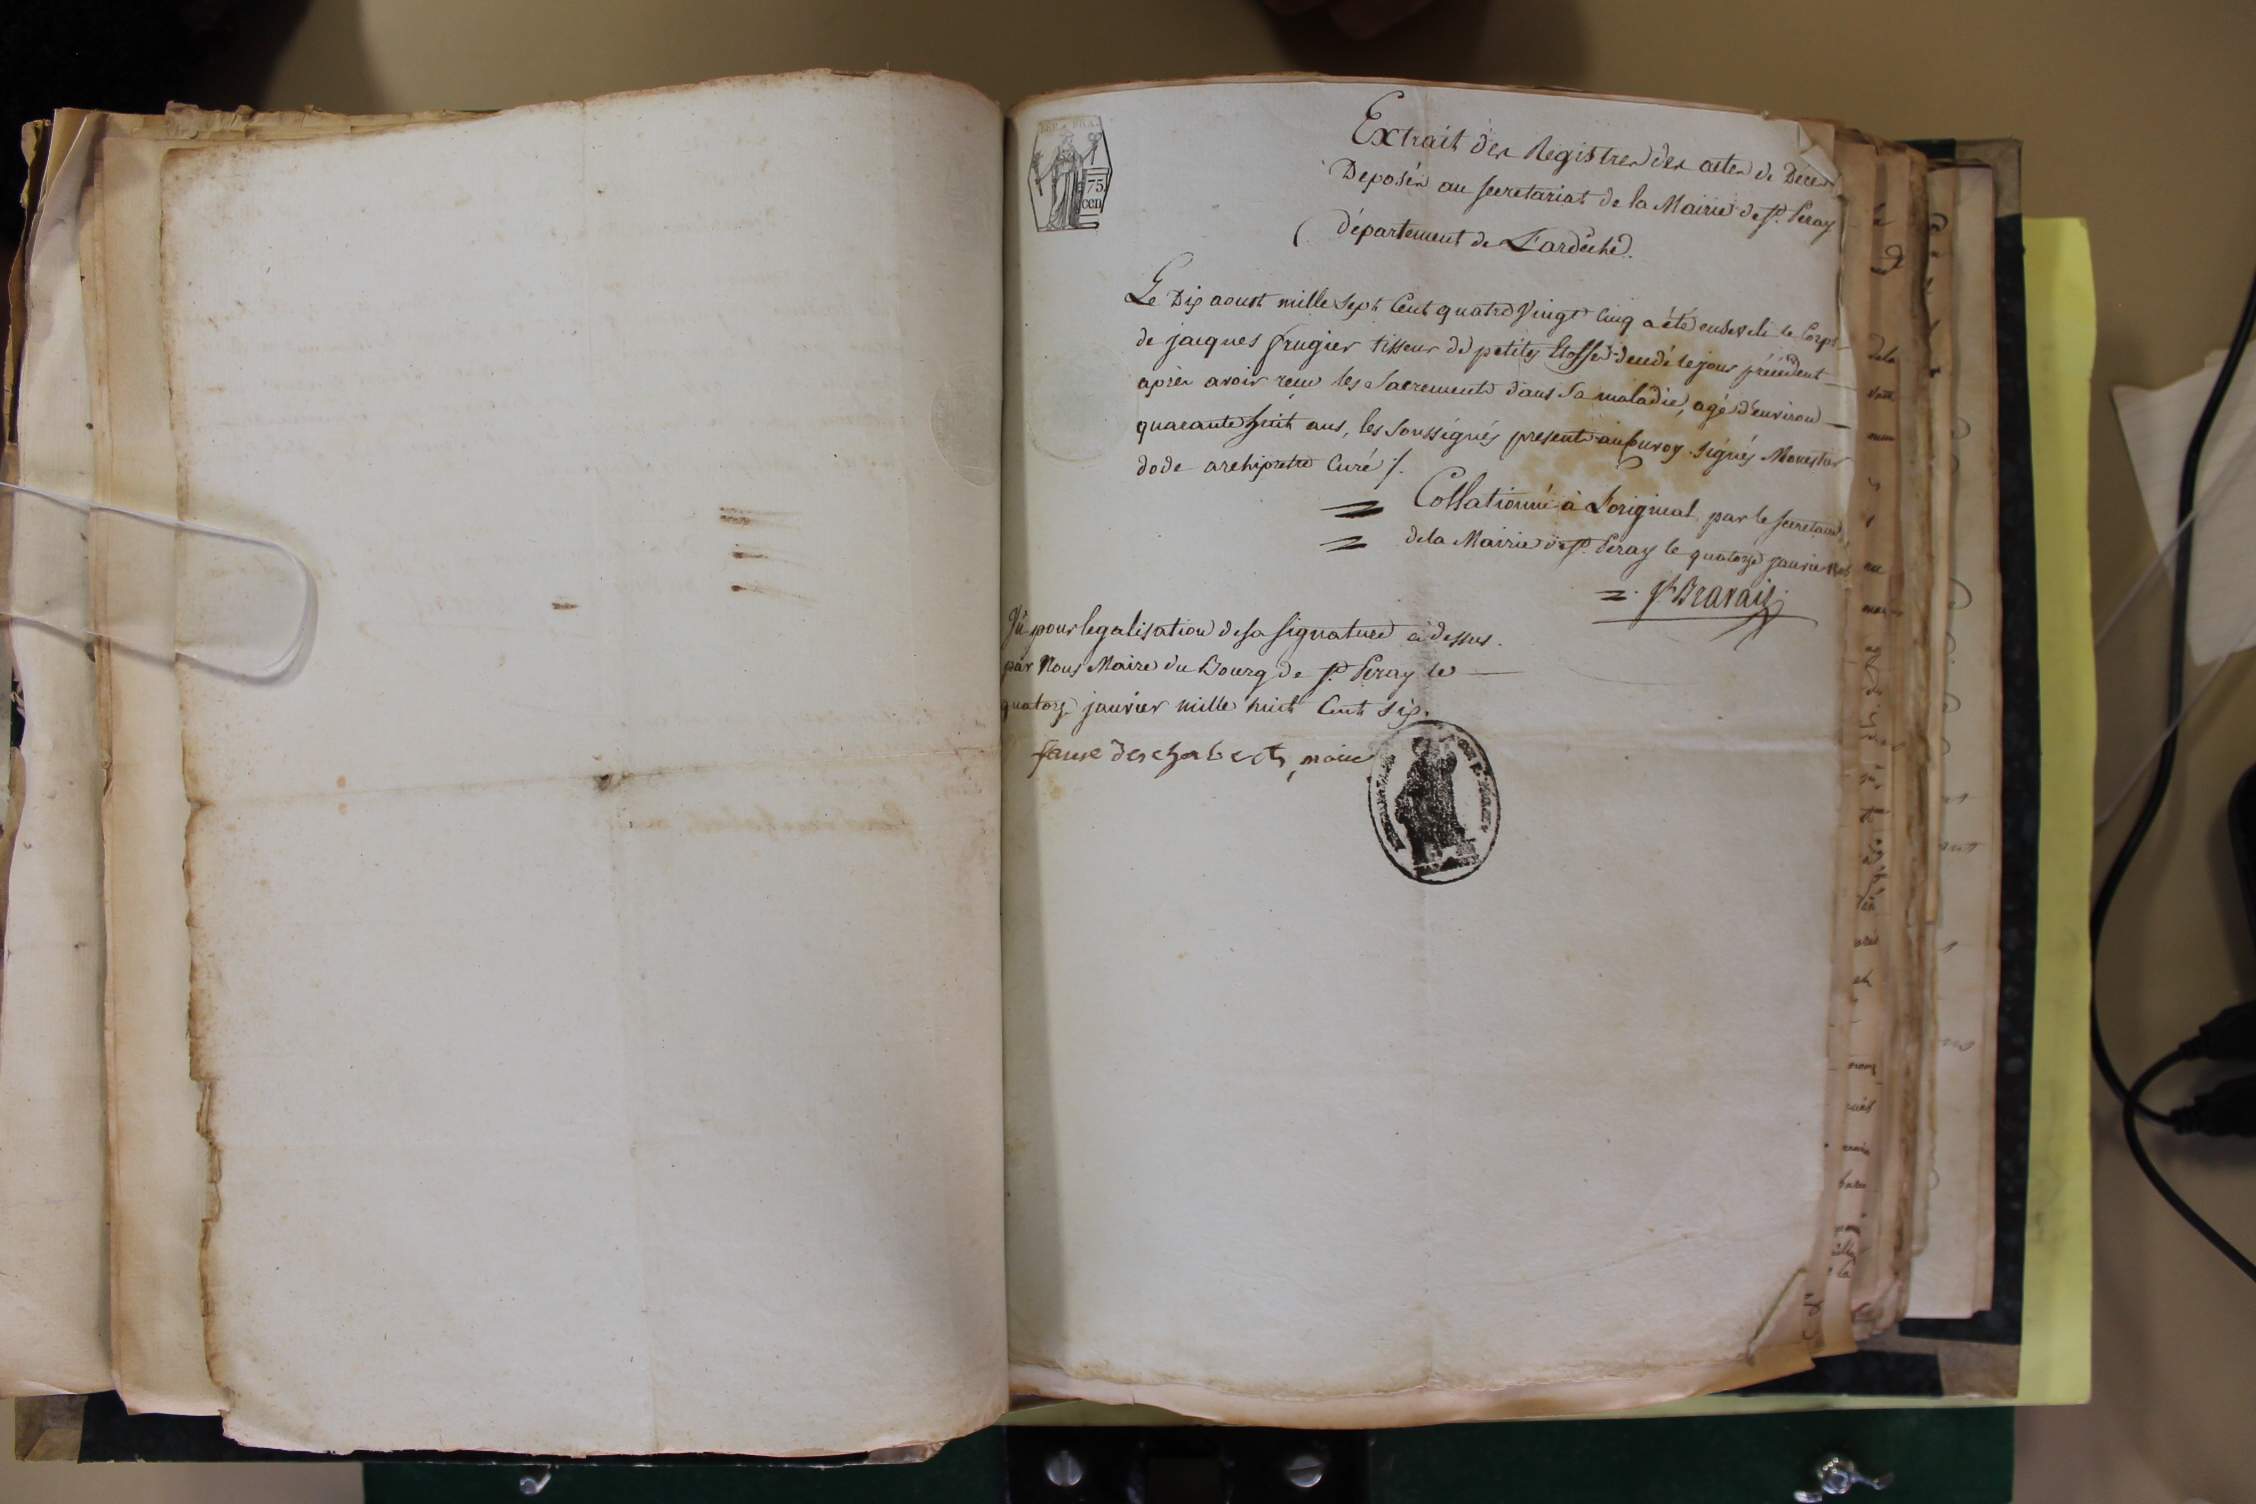 REP. FRA.
75
cen
Extrait des Registres des actes de Décès
Deposés au secretariat de la Mairie de St. Peray
département de L'ardèche.
Le Dix aoust mille Sept Cent quatre Vingt Cinq a été enseveli le Corps
de jacques frugier tisseur de petites Etoffes décédé le jour précédent
après avoir reçu les Sacrements dans Sa maladie, agé d'environ
quarante huit ans, les Soussignés presents au Convoy. signés Monestier
dode archipretre Curé /.
Collationné à L'original par le secretaire
de la Mairie de St. Peray le quatorze janvier
Bravais
Vû pour legalisation de sa signature ci dessus.
par Nous Maire du Bourg de St. Peray le
quatorze janvier mille huit Cent Six.
faure des chaberts, maire